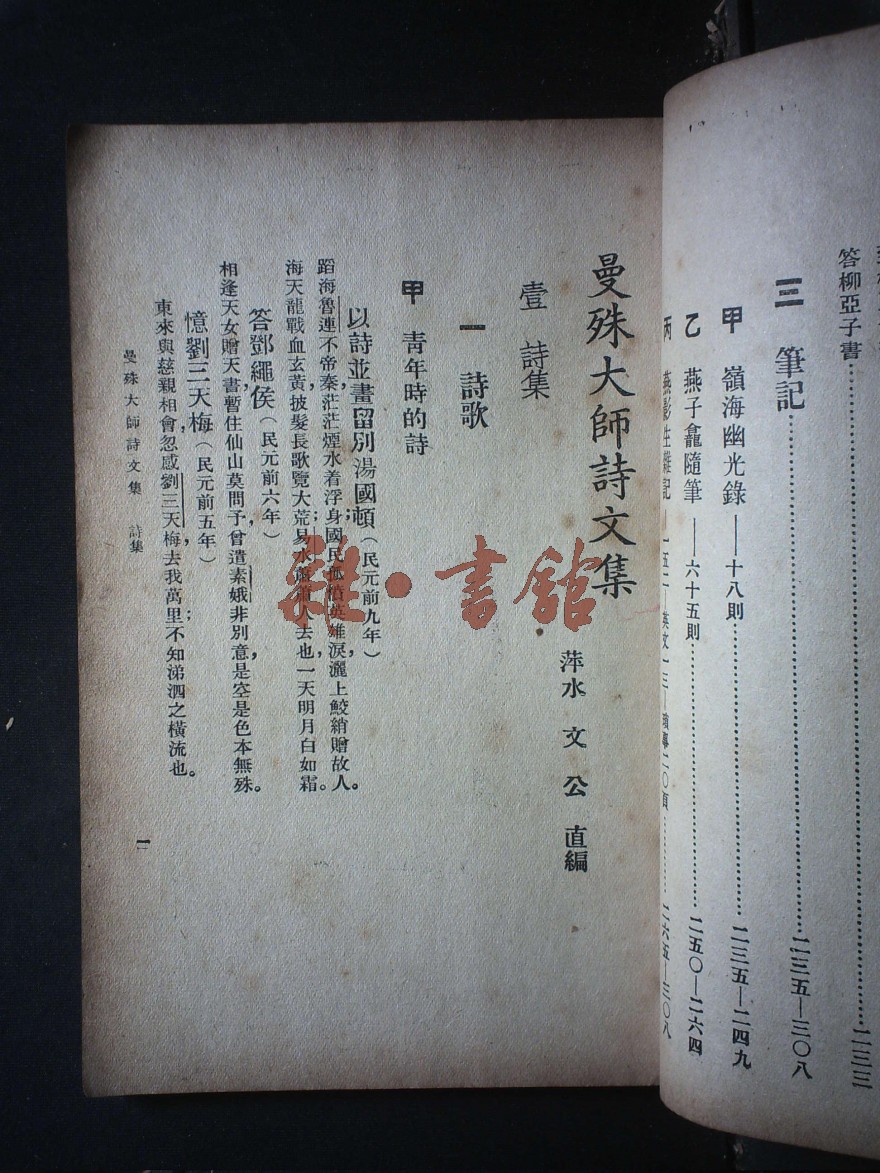 答柳亞子書……二三三
三 筆記……二三五—三〇八
甲 嶺海幽光錄——十八則……二三五—二四九
乙 燕子龕隨筆——六十五則……二五〇—二六四
丙 燕影生雜記——一五二 英文一三 二〇頁……二六五—三〇八
曼殊大師詩文集
萍水 文 公 直編
壹 詩集
一 詩歌
甲 青年時的詩
以詩並畫留別湯國頓(民元前九年)
蹈海魯連不帝秦,茫茫煙水着浮身;國民孤憤英雄淚,灑上鮫綃贈故人。
海天龍戰血玄黃,披髮長歌覽大荒;易水蕭蕭人去也,一天明月白如霜。
答鄧繩侯(民元前六年)
相逢天女贈天書,暫住仙山莫問予;曾遣素娥非別意,是空是色本無殊。
憶劉三天梅(民元前五年)
東來與慈親相會,忽感劉三天梅,去我萬里;不知涕泗之橫流也。
曼殊大師詩文集 詩集
一
雜·書館